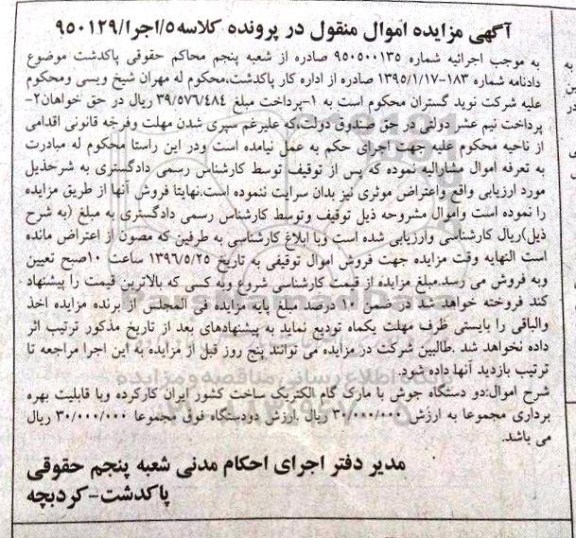 آگهی مزایده اموال منقول در پرونده کلاسه۵/اجرا/۹۵۰۱۲۹
به موجب اجرائیه شماره ۹۵۰۵۰۰۱۳۵ صادره از شعبه پنجم محاکم حقوقی پاکدشت موضوع
دادنامه شماره ۱۸۳-۱۳۹۵/۱/۱۷ صادره از اداره کار پاکدشت،محکوم له مهران شیخ ویسی ومحکوم
علیه شرکت نوید گستران محکوم است به ۱-پرداخت مبلغ ۳۹/۵۷۶/۴۸۴ ریال در حق خواهان۲-
پرداخت نیم عشر دولتی در حق صندوق دولت،که علیرغم سپری شدن مهلت وفرجه قانونی اقدامی
از ناحیه محکوم علیه جهت اجرای حکم به عمل نیامده است ودر این راستا محکوم له مبادرت
به تعرفه اموال مشارالیه نموده که پس از توقیف توسط کارشناس رسمی دادگستری به شرحذیل
مورد ارزیابی واقع واعتراض موثری نیز بدان سرایت ننموده است.نهایتا فروش آنها از طریق مزایده
را نموده است واموال مشروحه ذیل توقیف وتوسط کارشناس رسمی دادگستری به مبلغ (به شرح
ذیل)ریال کارشناسی وارزیابی شده است وبا ابلاغ کارشناسی به طرفین که مصون از اعتراض مانده
است النهایه وقت مزایده جهت فروش اموال توقیفی به تاریخ ۱۳۹۶/۵/۲۵ ساعت ۱۰صبح تعیین
وبه فروش می رسد.مبلغ مزایده از قیمت کارشناسی شروع وبه کسی که بالاترین قیمت را پیشنهاد
کند فروخته خواهد شد در ضمن ۱۰ درصد مبلغ پایه مزایده فی المجلس از برنده مزایده اخذ
والباقی را بایستی ظرف مهلت یکماه تودیع نماید به پیشنهادهای بعد از تاریخ مذکور ترتیب اثر
داده نخواهد شد .طالبین شرکت در مزایده می توانند پنج روز قبل از مزایده به این اجرا مراجعه تا
ترتیب بازدید آنها داده شود.
شرح اموال:دو دستگاه جوش با مارک گام الکتریک ساخت کشور ایران کارکرده وبا قابلیت بهره
برداری مجموعا به ارزش ۳۰/۰۰۰/۰۰۰ ریال .ارزش دودستگاه فوق مجموعا ۳۰/۰۰۰/۰۰۰ ریال
می باشد.
مدیر دفتر اجرای احکام مدنی شعبه پنجم حقوقی
پاکدشت-کردبچه